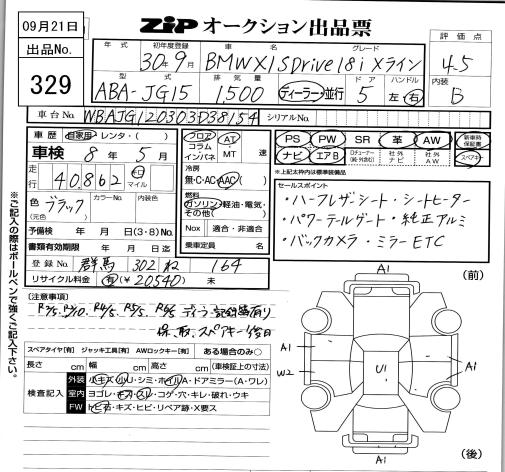 09月21日
出品No.
329
ZiPオークション出品票
年式 初年度登録 車名 グレード 評価点
30年9月 BMW X1 SDrive18i Xライン 4.5
型式 排気量 ドア ハンドル 内装
ABA-JG15 1,500 ディーラー・並行 5 左・右 B
車台No. WBAJG120303D38154 シリアルNo.
車歴 自家用・レンタ・( )
車検 8年5月
走行 40,862 キロ マイル
色 ブラック カラーNo. 内装色
(元色)
予備検 年 月 日(3・8)No.
書類有効期限 年 月 日迄
登録No. 群馬 302 ね 164
リサイクル料金 有(¥ 20540) 未
フロア AT
コラム
インパネ MT 速
冷房
無・C・AC・AAC( )
燃料
ガソリン・軽油・電気・
その他( )
Nox 適合・非適合
乗車定員 名
PS PW SR 革 AW 新車時保証書
ナビ エアB Dチューナー(続・外含む) 社外ナビ 社外AW スペアキー
※上記太枠内は標準装備品
セールスポイント
・ハーフレザーシート・シートヒーター
・パワーテールゲート・純正アルミ
・バックカメラ・ミラーETC
※ご記入の際はボールペンで強くご記入下さい。
[注意事項]
保、取、スペアキー後日
スペアタイヤ[有] ジャッキ工具[有] AWロックキー[有] ある場合のみ○
長さ cm 幅 cm 高さ cm (車検証上の寸法)
検査記入
外装 小キズ・小U・シミ・ホイルA・ドアミラー(A・ワレ)
室内 ヨゴレ・キズ・スレ・コゲ・穴・キレ・破れ・ウキ
FW トビ石・キズ・ヒビ・リペア跡・X要ス
A1
(前)
A1
W2
U1
A1
A1
(後)